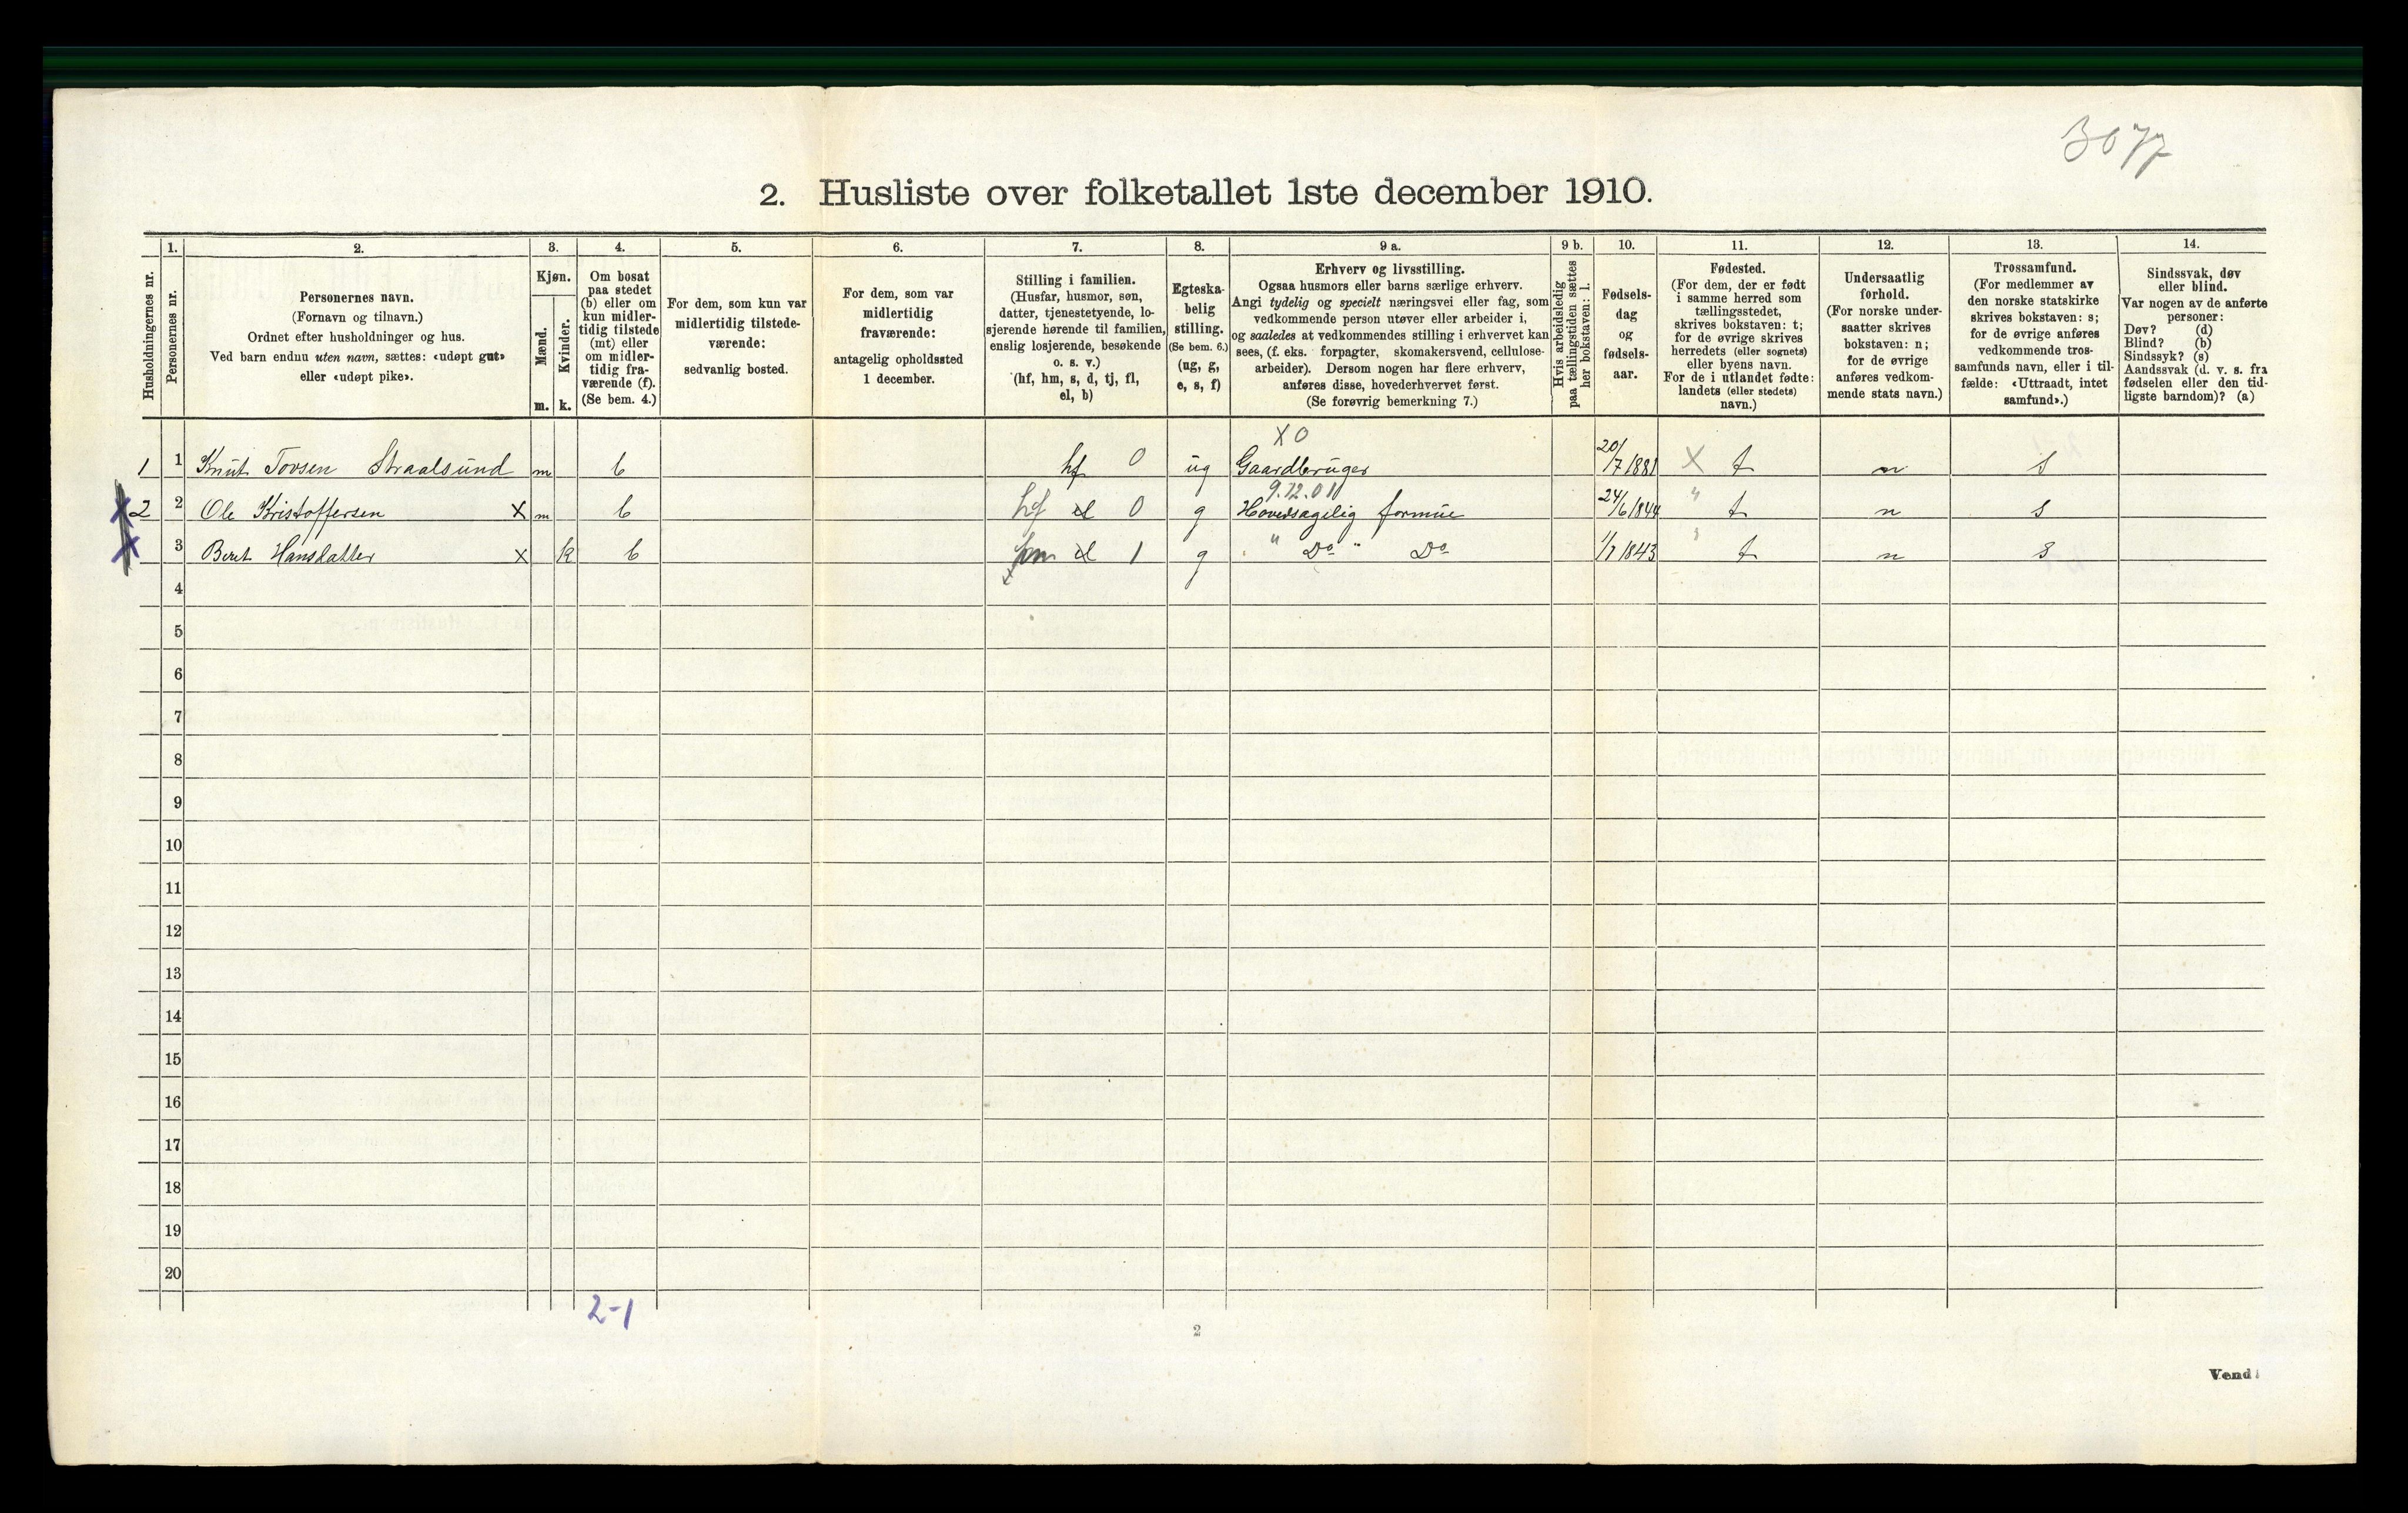 3077
2. Husliste over folketallet 1ste december 1910.
Husholdningernes nr.
1.
Personernes nr.
2.
Personernes navn.
(Fornavn og tilnavn.)
Ordnet efter husholdninger og hus.
Ved barn endnu uten navn, sættes: «udøpt gut»
eller «udøpt pike».
3.
Kjøn.
Mænd.
m.
Kvinder.
k.
4.
Om bosat
paa stedet
(b) eller om
kun midler-
tidig tilstede
(mt) eller
om midler-
tidig fra-
værende (f).
(Se bem. 4.)
5.
For dem, som kun var
midlertidig tilstede-
værende:
sedvanlig bosted.
6.
For dem, som var
midlertidig
fraværende:
antagelig opholdssted
1 december.
7.
Stilling i familien.
(Husfar, husmor, søn,
datter, tjenestetyende, lo-
sjerende hørende til familien,
enslig losjerende, besøkende
o. s. v.)
(hf, hm, s, d, tj, fl,
el, b)
8.
Egteska-
belig
stilling.
(Se bem. 6.)
(ug, g,
e, s, f)
9 a.
Erhverv og livsstilling.
Ogsaa husmors eller barns særlige erhverv.
Angi tydelig og specielt næringsvei eller fag, som
vedkommende person utøver eller arbeider i,
og saaledes at vedkommendes stilling i erhvervet kan
sees, (f. eks. forpagter, skomakersvend, cellulose-
arbeider). Dersom nogen har flere erhverv,
anføres disse, hovederhvervet først.
(Se forøvrig bemerkning 7.)
9 b.
Hvis arbeidsledig
paa tællingstiden sættes
her bokstaven: l.
10.
Fødsels-
dag
og
fødsels-
aar.
11.
Fødested.
(For dem, der er født
i samme herred som
tællingsstedet,
skrives bokstaven: t;
for de øvrige skrives
herredets (eller sognets)
eller byens navn.
For de i utlandet fødte:
landets (eller stedets)
navn.)
12.
Undersaatlig
forhold.
(For norske under-
saatter skrives
bokstaven: n;
for de øvrige
anføres vedkom-
mende stats navn.)
13.
Trossamfund.
(For medlemmer av
den norske statskirke
skrives bokstaven: s;
for de øvrige anføres
vedkommende tros-
samfunds navn, eller i til-
fælde: «Uttraadt, intet
samfund».)
14.
Sindssvak, døv
eller blind.
Var nogen av de anførte
personer:
Døv? (d)
Blind? (b)
Sindssyk? (s)
Aandssvak (d. v. s. fra
fødselen eller den tid-
ligste barndom)? (a)
X 0
1 1 Knut Tovsen Straalsund m b hf 0 ug Gaardbruger 20/7 1881 X t n s
9.12.01
X 2 2 Ole Kristoffersen X m b hf el 0 g Hovedsagelig formue 24/6 1844 " t n s
X 3 Berit Hansdatter X k b hm el 1 g " Do " Do 1/7 1843 " t n s
4
5
6
7
8
9
10
11
12
13
14
15
16
17
18
19
20
2-1
2
Vend!